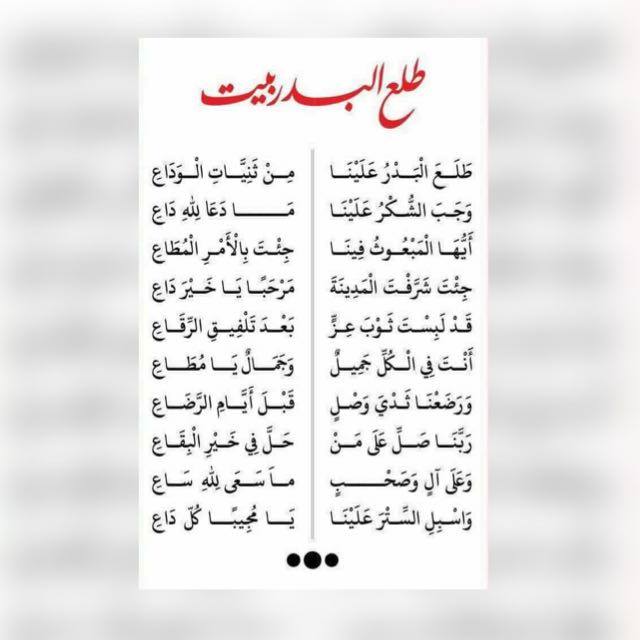 طلع البدر بيت
طَلَعَ الْبَدْرُ عَلَيْنَا مِنْ ثَنِيَّاتِ الْوَدَاعِ
وَجَبَ الشُّكْرُ عَلَيْنَا مَا دَعَا لِلّٰهِ دَاعِ
أَيُّهَا الْمَبْعُوثُ فِينَا جِئْتَ بِالْأَمْرِ الْمُطَاعِ
جِئْتَ شَرَّفْتَ الْمَدِينَةَ مَرْحَبًا يَا خَيْرَ دَاعِ
قَدْ لَبِسْتَ ثَوْبَ عِزٍّ بَعْدَ تَلْفِيقِ الرِّقَاعِ
أَنْتَ فِي الْكُلِّ جَمِيلٌ وَجَمَالٌ يَا مُطَاعِ
وَرَضَعْنَا ثَدْيَ وَصْلٍ قَبْلَ أَيَّامِ الرَّضَاعِ
رَبَّنَا صَلِّ عَلَى مَنْ حَلَّ فِي خَيْرِ الْبِقَاعِ
وَعَلَى آلٍ وَصَحْبٍ مَا سَعَى لِلّٰهِ سَاعِ
وَاسْبِلِ السِّتْرَ عَلَيْنَا يَا مُجِيبًا كُلَّ دَاعِ